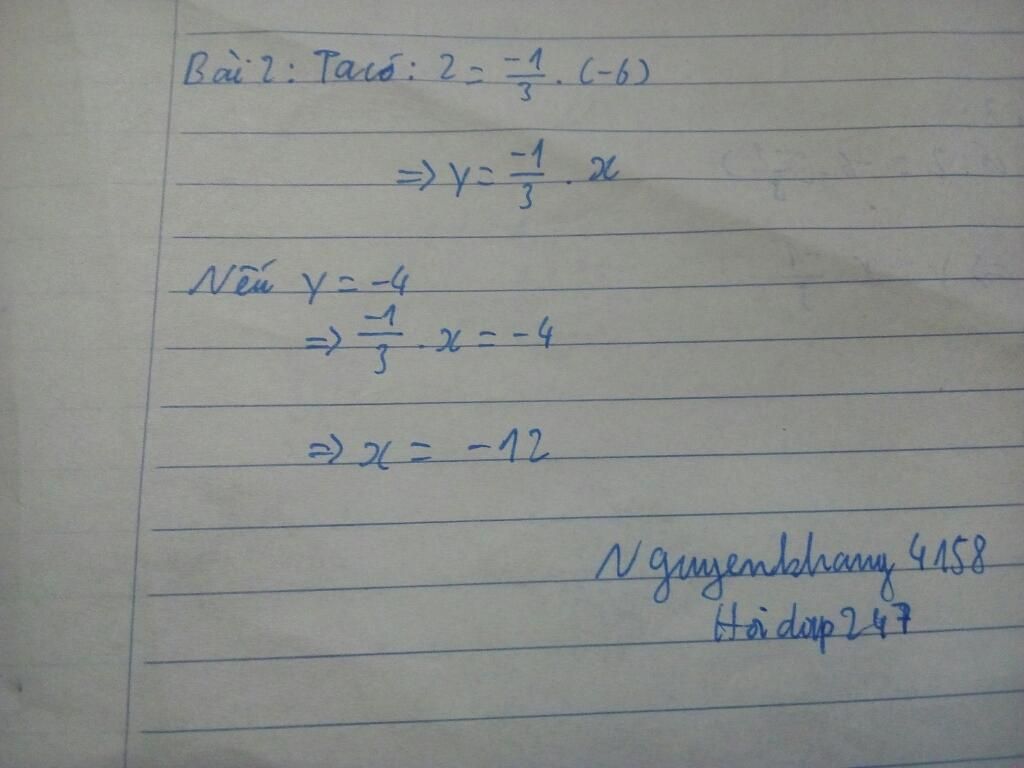 Bài 2: Ta có: 2 = -1/3 . (-6)
=> y = -1/3 . x
Nếu y = -4
=> -1/3 . x = -4
=> x = -12
Nguyenkhang 4158
Hỏi dap 247